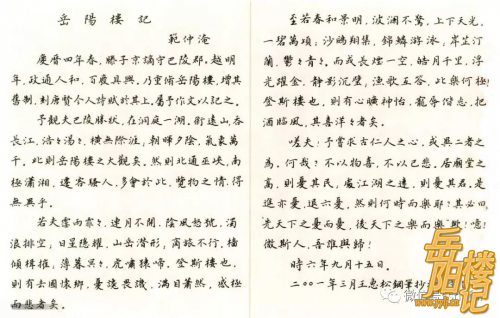 岳陽樓記
範仲淹
慶曆四年春，滕子京謫守巴陵郡，越明
年，政通人和，百廢具興，乃重脩岳陽樓，增其
舊制，刻唐賢今人詩賦於其上，屬予作文以記之。
予觀夫巴陵勝狀，在洞庭一湖。銜遠山，吞
長江，浩浩湯湯，橫無際涯，朝暉夕陰，氣象萬
千，此則岳陽樓之大觀矣。然則北通巫峽，南
極瀟湘，遷客騷人，多會於此，覽物之情，得
無異乎。
若夫霪雨霏々，連月不開，陰風怒號，濁
浪排空，日星隱耀，山岳潛形，商旅不行，檣
傾楫摧，薄暮冥々，虎嘯猿啼，登斯樓也，
則有去國懷鄉，憂讒畏譏，滿目蕭然，感極
而悲者矣。
至若春和景明，波瀾不驚，上下天光，
一碧萬頃；沙鷗翔集，錦鱗游泳，岸芷汀
蘭，鬱々青々。而或長煙一空，皓月千里，浮
光躍金，靜影沉璧，漁歌互答，此樂何極！
登斯樓也，則有心曠神怡，寵辱偕忘，把
酒臨風，其喜洋々者矣。
嗟夫！予嘗求古仁人之心，或異二者之
為，何哉？不以物喜，不以己悲，居廟堂之
高，則憂其民，處江湖之遠，則憂其君。是
進亦憂，退亦憂，然則何時而樂耶？其必曰
先天下之憂而憂，後天下之樂而樂歟！噫！
微斯人，吾誰與歸！
時六年九月十五日。
二〇〇一年三月王惠松鋼筆抄
岳陽樓记